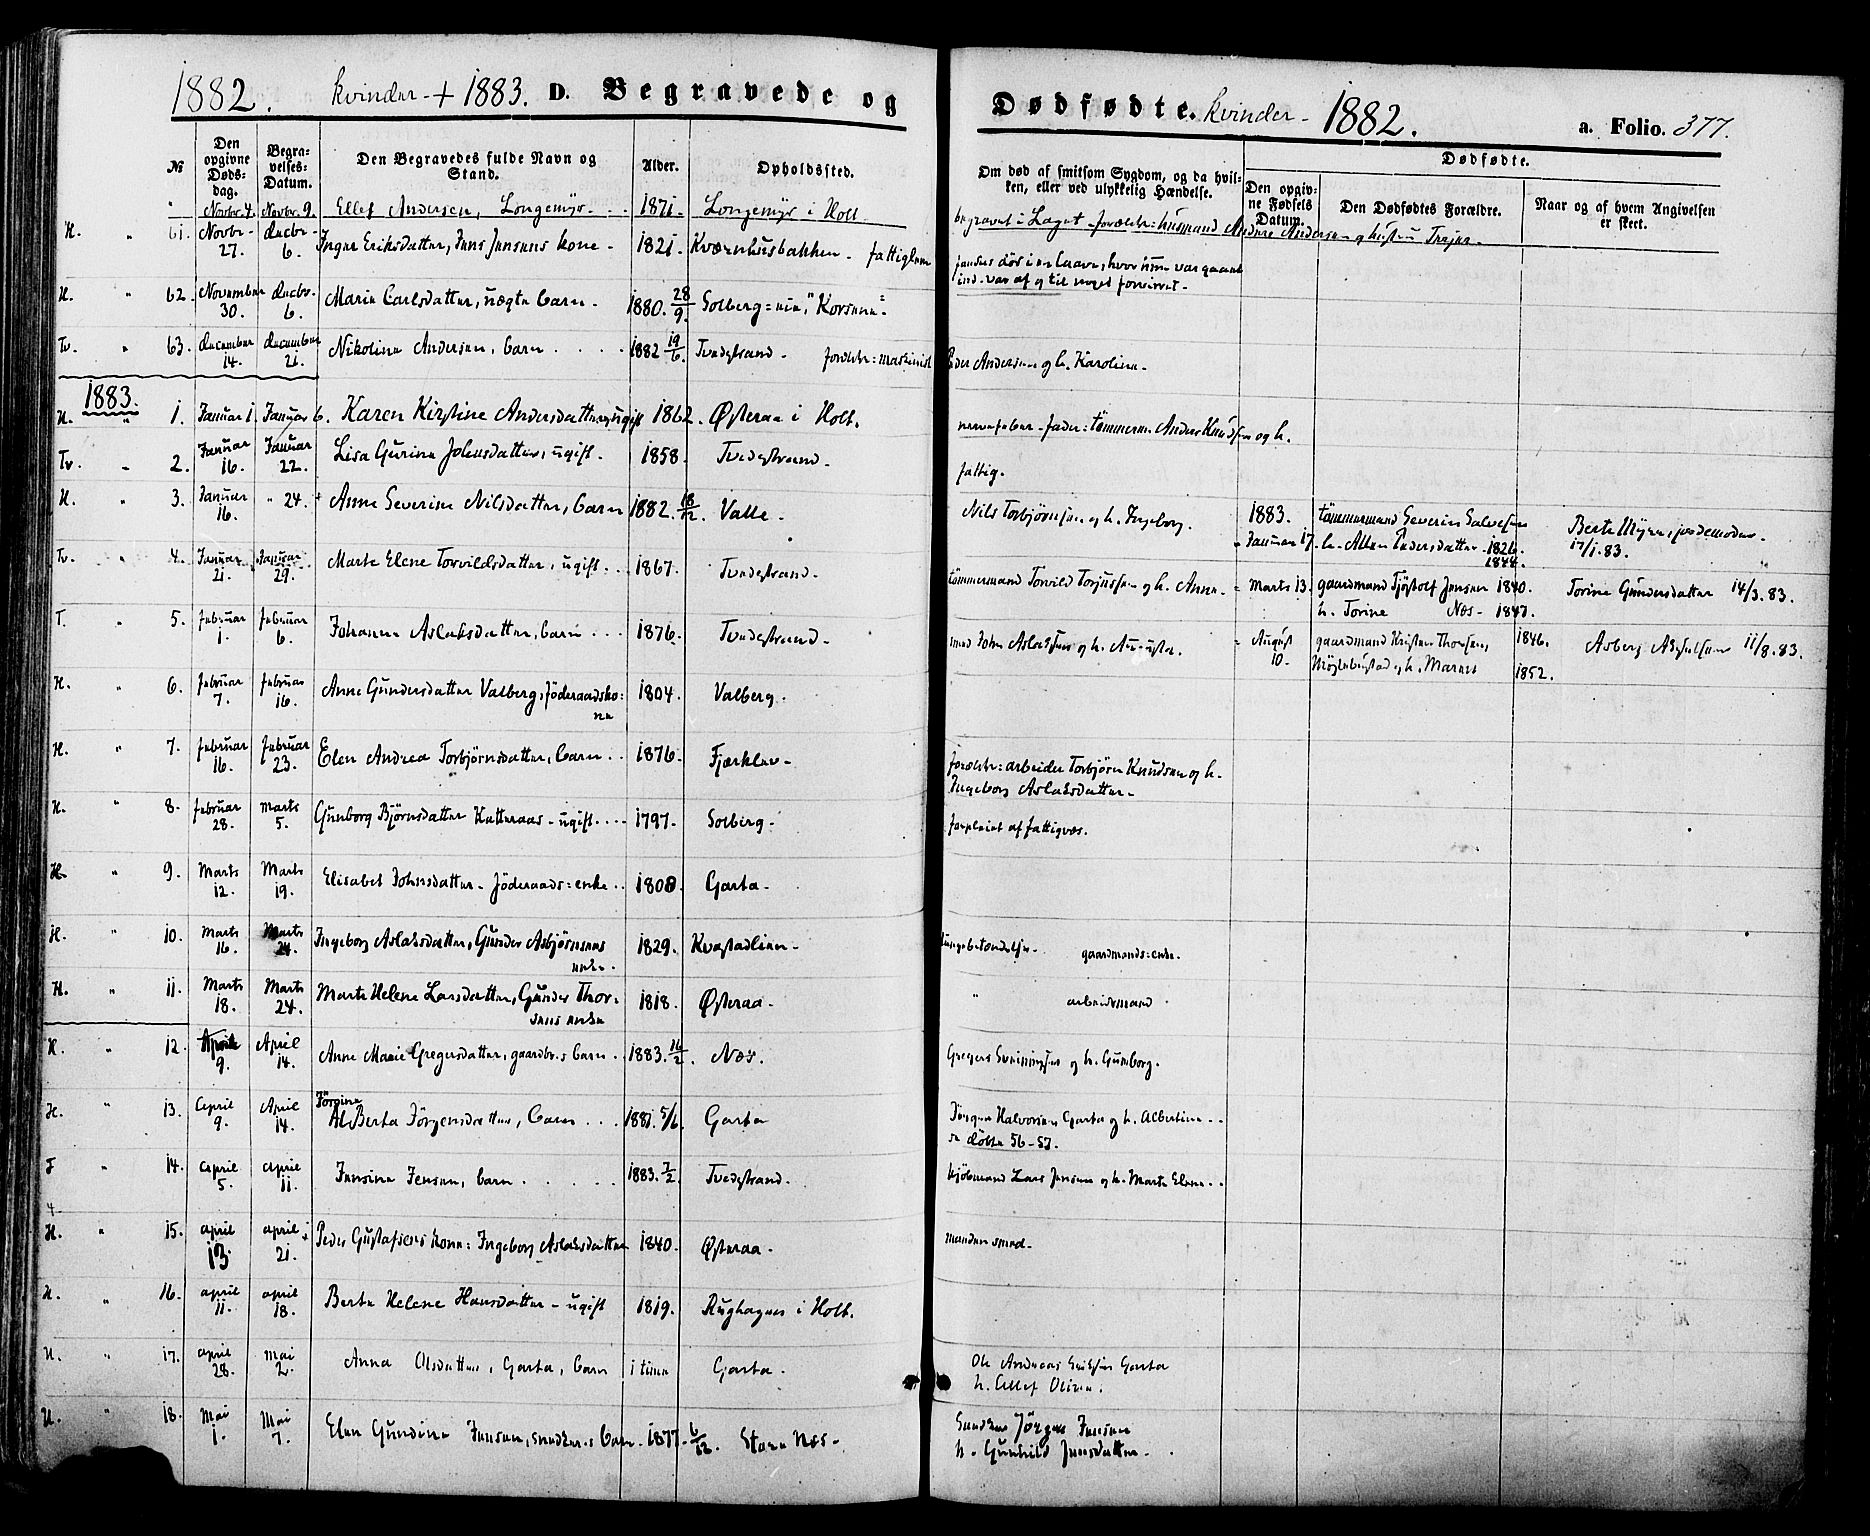 1882. kvinder + 1883. D. Begravede og Dødfødte. kvinder - 1882. a. Folio. 377.
№ | Den opgivne Dødsdag. | Begravelses-Datum. | Den Begravedes fulde Navn og Stand. | Alder. | Opholdssted. | Om død af smitsom Sygdom, og da hvilken, eller ved ulykkelig Hændelse. | Dødfødte. Den opgivne Fødsels Datum. | Den Dødfødtes Forældre. | Naar og af hvem Angivelsen er skeet.
" Novbr. 4. Novbr. 9. Ellef Andersen, Longemyr 1871. Longemyr i Holt. begravet i Laget - forældre: husmand Andersen og hustru
H. " 61. Novbr. 27. decbr. 6. Inger Eriksdatter, Jens Jensens kone - 1821. Kværnhusbakken - fattiglem
ind - var af og til noget forvirret -
H. " 62. November 30. decbr. 6. Marie Carlsdatter, uægte barn - 1880. 28/9. Solberg "Korsene"
Tv. " 63. december 14. december 21. Nikoline Andersen, barn 1882 19/6. Tvedestrand - forældre: maskinist Peder Andersen og h. Karoline -
1883.
H. " 1. Januar 1. Januar 6. Karen Kirstine Andersdatter, ugift 1862. Østeraa i Holt. nervefeber - fader: tømmerm. Anders Knudsen og h.
Tv. " 2. Januar 16. Januar 22. Lisa Gurine Johnsdatter, ugift - 1858. Tvedestrand. fattig.
H. " 3. Januar 16. " 24. Anne Severine Nilsdatter, barn 1882. 18/12. Valle. Nils Torbjørnsen og h. Ingeborg. 1883. Januar 17. tømmermand Severin Salvesen h. Pedersdatter - 1826. 1844. Berte Myren, jordemoder. 17/1.83.
Tv. " 4. Januar 21. Januar 29. Marte Elene Torvildsdatter, ugift 1867. Tvedestrand. tømmermand Torvild Torjussen og h. Anne. " Marts 13. gaardmand Tjøstolf Jensen 1840. h. Torine Næs - 1847. Torine Gundersdatter 14/3.83.
T. " 5. Februar 1. Februar 6. Johanne Aslaksdatter, barn 1876. Tvedestrand. smed John Aslaksen og h. Augusta. " August 10. gaardmand Kristen Thorsen, 1846. og h. Maren 1852. Asberg Akselsen 11/8.83.
H. " 6. Februar 7. Februar 16. Anne Gundersdatter Valberg, Föderaadskone 1804. Valberg.
H. " 7. Februar 16. Februar 23. Elen Andrea Torbjørnsdatter, barn 1876. Fjærkleiv - forældre: arbeider Torbjørn Knudsen og h. Ingeborg Aslaksdatter -
H. " 8. Februar 28. Marts 5. Gunborg Bjørnsdatter Katteraas - ugift 1797. Solberg. forpleiet af fattigvæs.
H. " 9. Marts 12. Marts 19. Elisabet Johnsdatter - Föderaads=enke 1808. Garta.
H. " 10. Marts 16. Marts 24. Ingeborg Aslaksdatter, Gunder Asbjørnsens enke. 1829. Kvastadlien - lungebetændelse. gaardmands=enke.
H. " 11. Marts 18. Marts 24. Marte Helene Larsdatter, Gunder Thorsens enke 1818. Østeraa - " arbeidsmand
H. " 12. April 9. April 14. Anne Marie Gregersdatter, gaardbr.s barn 1883. 16/2. Næs. Gregers Sveinungsen og h. Gunborg.
H. " 13. April 9. April 14. Jörgine AlBerta Jörgensdatter, barn 1881. 5/6. Garta Jörgen Halvorsen Garta og h. Albertine se döbte 56-57.
T " 14. April 5. april 11. Jensine Jensen, barn 1883. 7/2. Tvedestrand. kjöbmand Lars Jensen og h. Marte Elene
H. " 15. april 13. april 21. Peder Gustafsens kone: Ingeborg Aslaksdatter 1840. Østeraa. manden smed.
H. " 16. april 11. april 18. Berte Helene Hansdatter - ugift 1819. Rughagen i Holt.
H. " 17. april 28. mai 2. Anna Olsdatter, Garta, barn 1 time Garta. Ole Andreas Eriksen Garta h. Ellef Olivia.
H. " 18. Mai 1. Mai 7. Elen Gundine Jensen, snedker.s barn - 1877 6/12. Store Næs - Snedker Jörgen Jensen h. Gunhild Jensdatter.